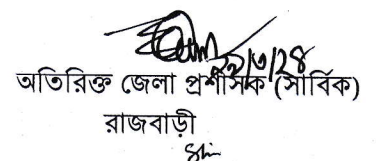 ২২/৩/২৪
অতিরিক্ত জেলা প্রশাসক (সার্বিক)
রাজবাড়ী